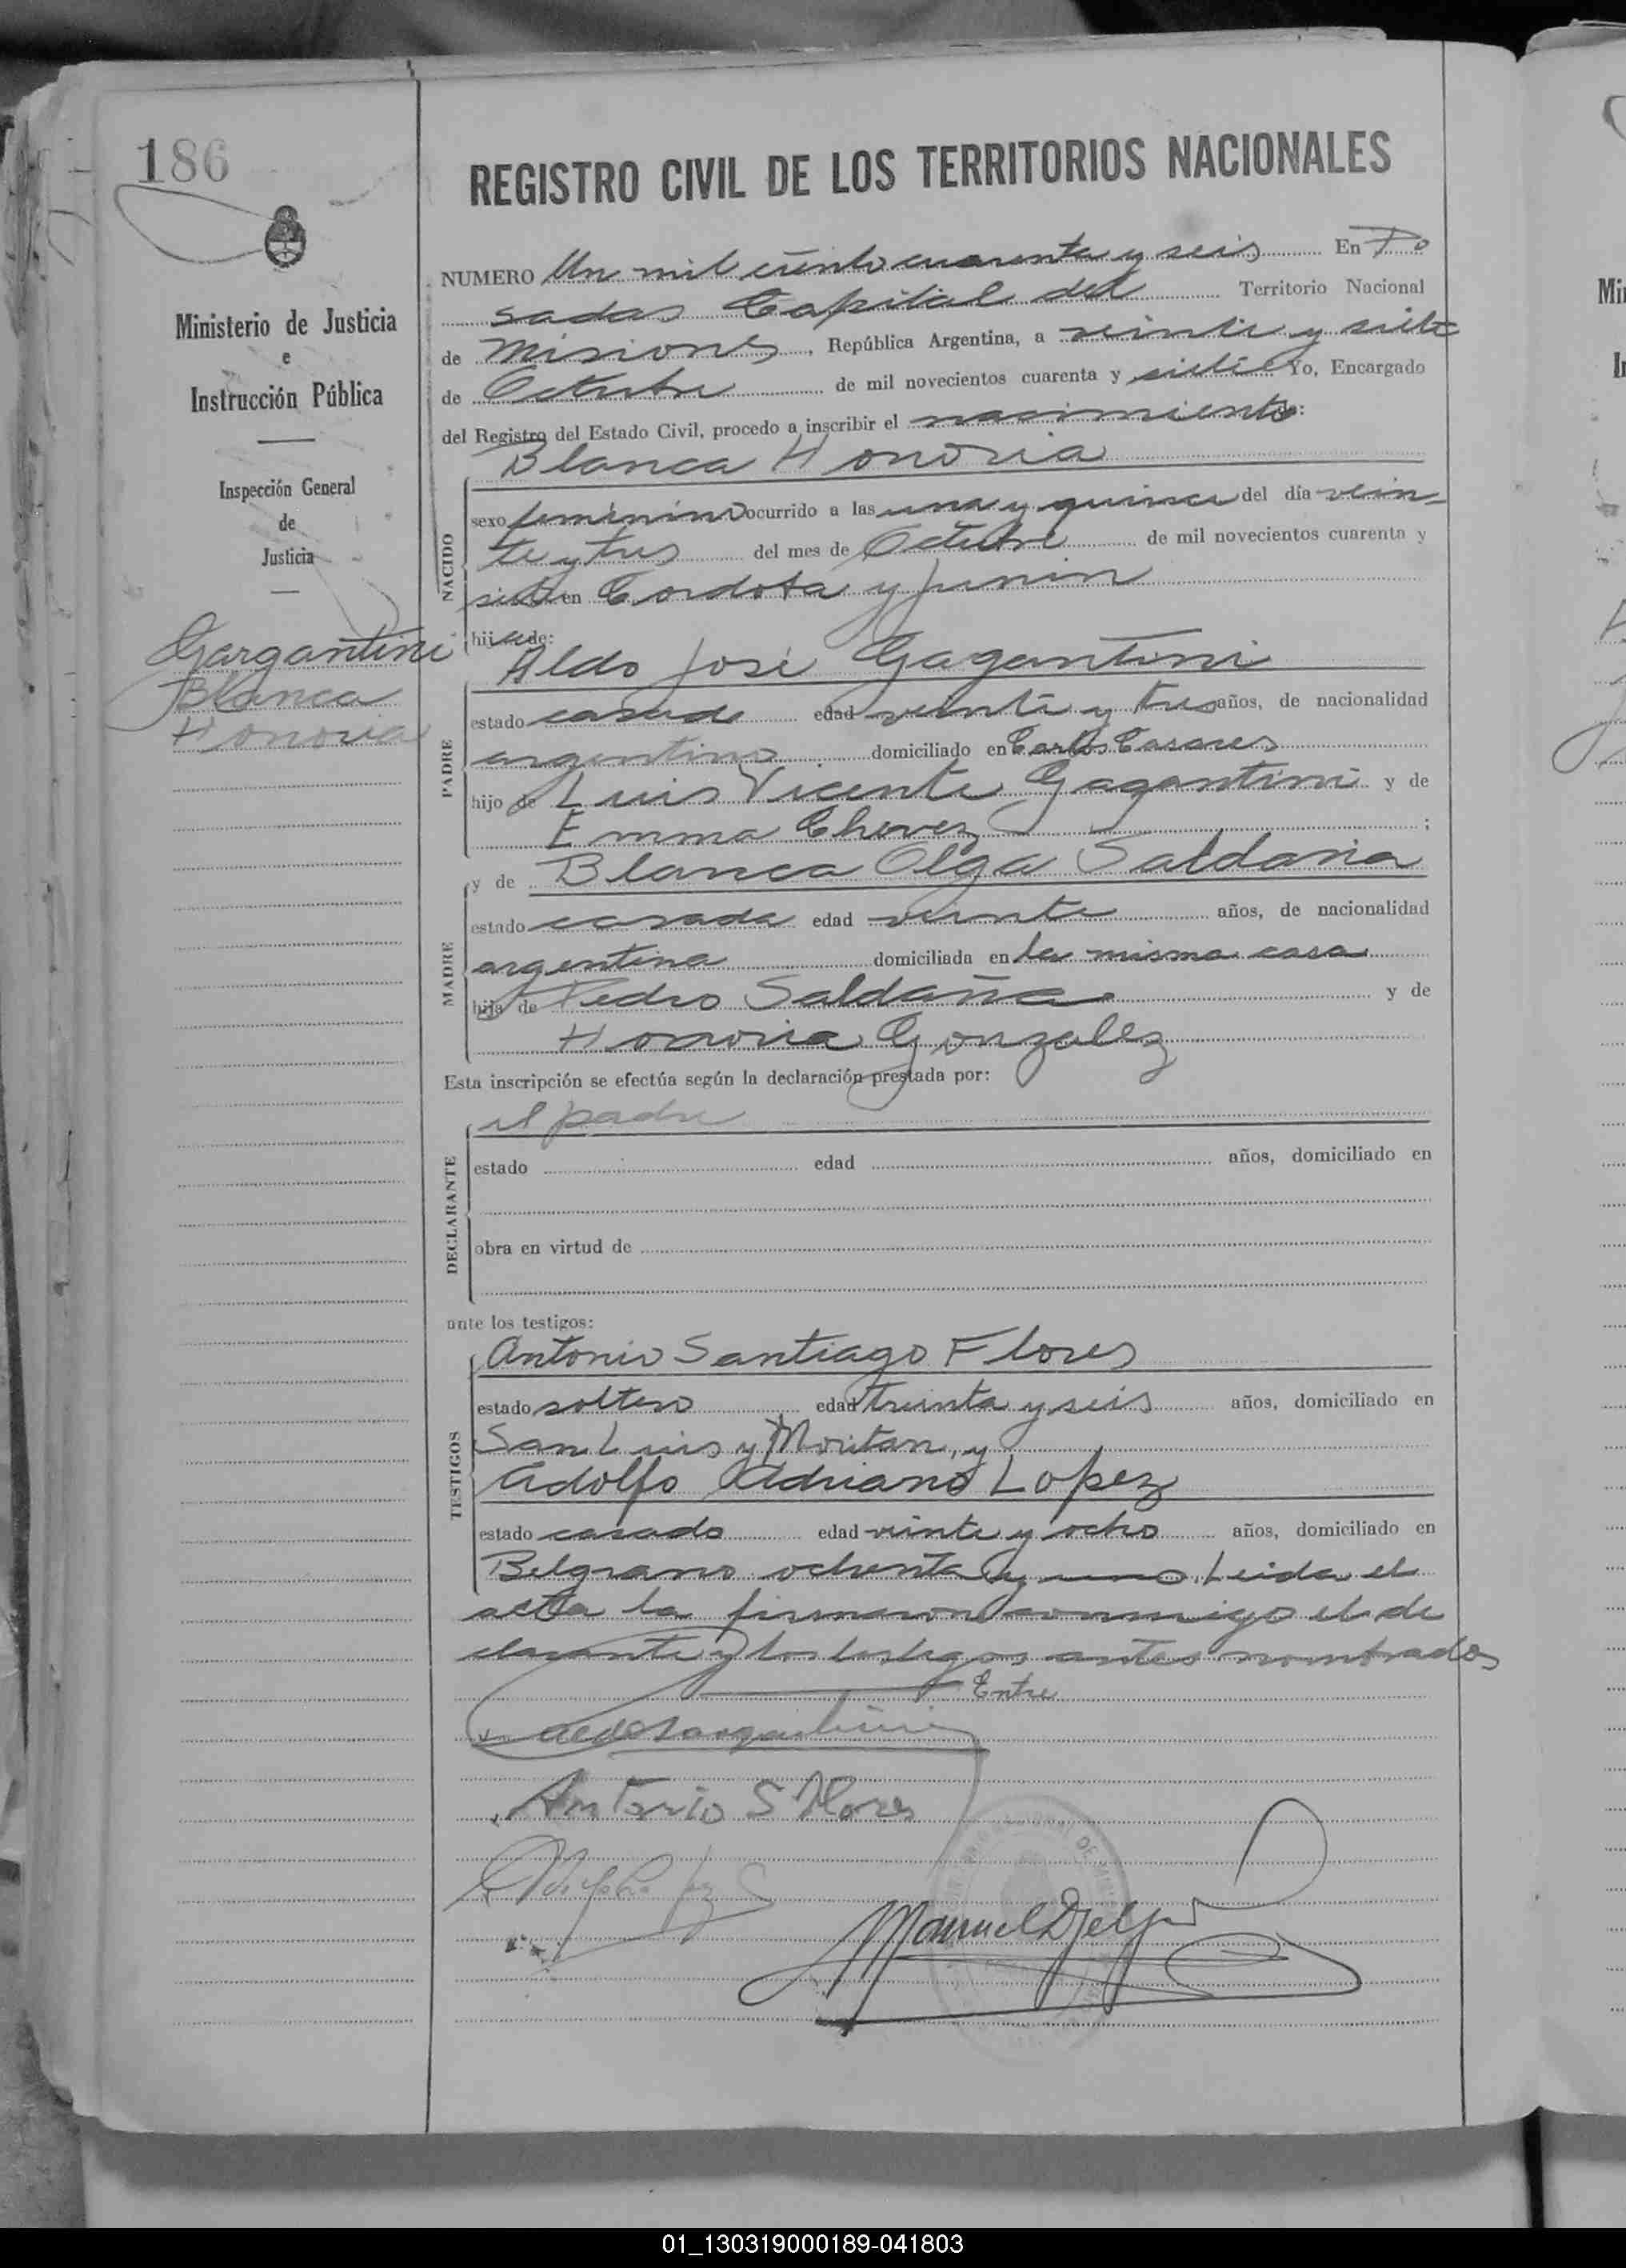 186
REGISTRO CIVIL DE LOS TERRITORIOS NACIONALES
Ministerio de Justicia
e
Instrucción Pública
Inspección General
de
Justicia
Gargantini
Blanca
Honoria
NUMERO Un mil ciento cuarenta y seis En Po
sadas Capital del Territorio Nacional
de Misiones, República Argentina, a veinte y siete
de Octubre de mil novecientos cuarenta y siete Yo, Encargado
del Registro del Estado Civil, procedo a inscribir el nacimiento:
Blanca Honoria
NACIDO
sexo femenino ocurrido a las una y quince del día vein-
te y tres del mes de Octubre de mil novecientos cuarenta y
siete en Cordoba y Junin
hija de:
Aldo José Gagantini
PADRE
estado casado edad veinte y tres años, de nacionalidad
argentino domiciliado en Carlos Casares
hijo de Luis Vicente Gagantini y de
Emma Chevez;
y de Blanca Olga Saldaña
MADRE
estado casada edad veinte años, de nacionalidad
argentina domiciliada en la misma casa
hija de Pedro Saldaña y de
Honoria Gonzalez
Esta inscripción se efectúa según la declaración prestada por:
el padre
DECLARANTE
estado edad años, domiciliado en
obra en virtud de
ante los testigos:
Antonio Santiago Flores
TESTIGOS
estado soltero edad treinta y seis años, domiciliado en
San Luis y Moritan, y
Adolfo Adriano Lopez
estado casado edad veinte y ocho años, domiciliado en
Belgrano ochenta y uno. Leida el
acta la firmaron conmigo el de
clarante y los testigos antes nombrados
Entre
Antonio S Flores
Manuel
01_130319000189-041803